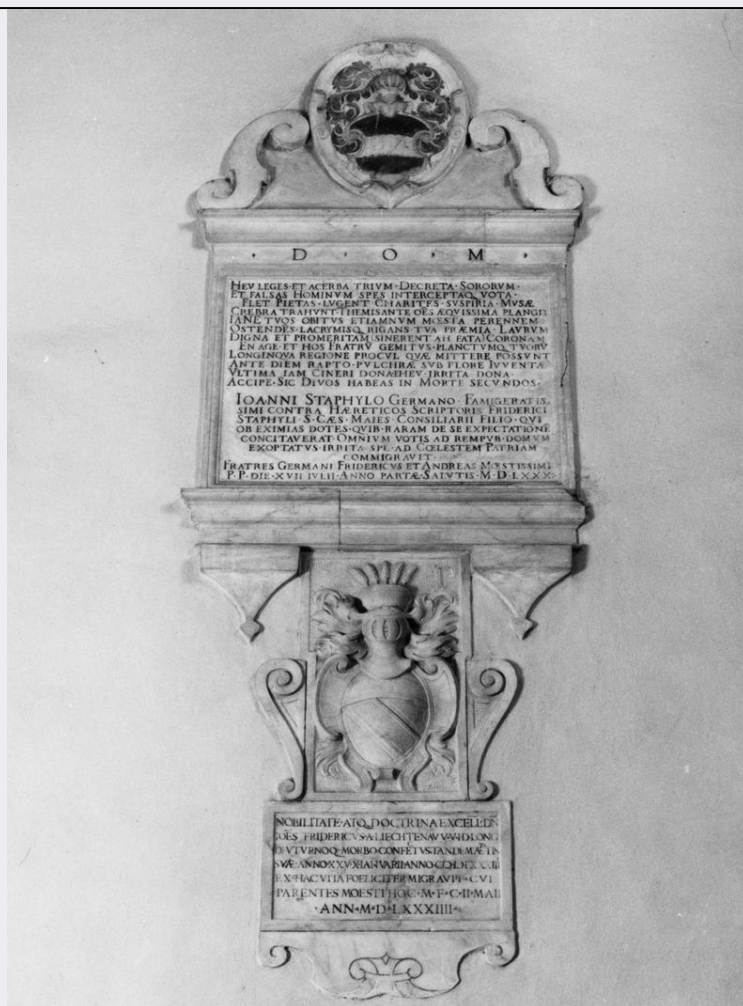 · D · O · M ·
HEV LEGES·ET ACERBA TRIVM·DECRETA·SORORVM·
ET FALSAS HOMINVM SPES INTERCEPTAQ VOTA·
FLET PIETAS·LVGENT CHARITES·SVSPIRIA·MVSÆ
CREBRA TRAHVNT·THEMIS ANTE OĒS ÆQVISSIMA PLANGIT
IANE TVOS OBITVS ETIAMNVM MŒSTA PERENNEM
OSTENDĒS·LACRYMISQ RIGANS·TVA PRÆMIA·LAVRVM
DIGNA ET PROMERITAM SINERENT AH FATA CORONAM
EN AGE·ET HOS FRATRV̄ GEMITVS·PLANCTVMQ TVORV̄
LONGINQVA REGIONE PROCVL QVÆ MITTERE POSSVNT
ANTE DIEM RAPTO·PVLCHRÆ SVB FLORE IVVENTÆ
VLTIMA IAM CINERI DONA·HEV·IRRITA DONA·
ACCIPE·SIC DIVOS HABEAS IN MORTE SECVNDOS·
IOANNI STAPHYLO GERMANO·FAMIGERATIS
SIMI CONTRA HÆRETICOS SCRIPTORIS FRIDERICI
STAPHYLI·S·CÆS·MAIES·CONSILIARII FILIO·QVI
OB EXIMIAS DOTES·QVIB·RARAM DE SE EXPECTATIONĒ
CONCITAVERAT·OMNIVM VOTIS AD REMPVB·DOMVM
EXOPTATVS·IRRITA SPE·AD CŒLESTEM PATRIAM
COMMIGRAVIT·
FRATRES GERMANI FRIDERICVS ET ANDREAS MŒSTISSIMI
P·P·DIE·XVII IVLII·ANNO PARTÆ·SALVTIS·M·D·LXXX·
NOBILITATE·ATQ DOCTRINA EXCELL:DN̄
IOĒS FRIDERICVS·A LIECHTENAV
MORBO CONFĒTVS TANDEM ÆT
SVÆ ANNO XXV IANVARII ANNO
EX HAC VITA FOELICITER MIGRAVIT·CVI
PARENTES MOESTI HOC·M·F·C·II·MAII
·ANN·M·D·LXXXIIII·